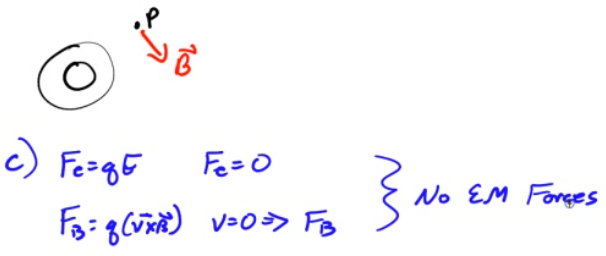 .P
B⃗
c) Fe=qE Fe=0
F_B=q(v⃗×B⃗) v=0 => F_B } No EM Forces